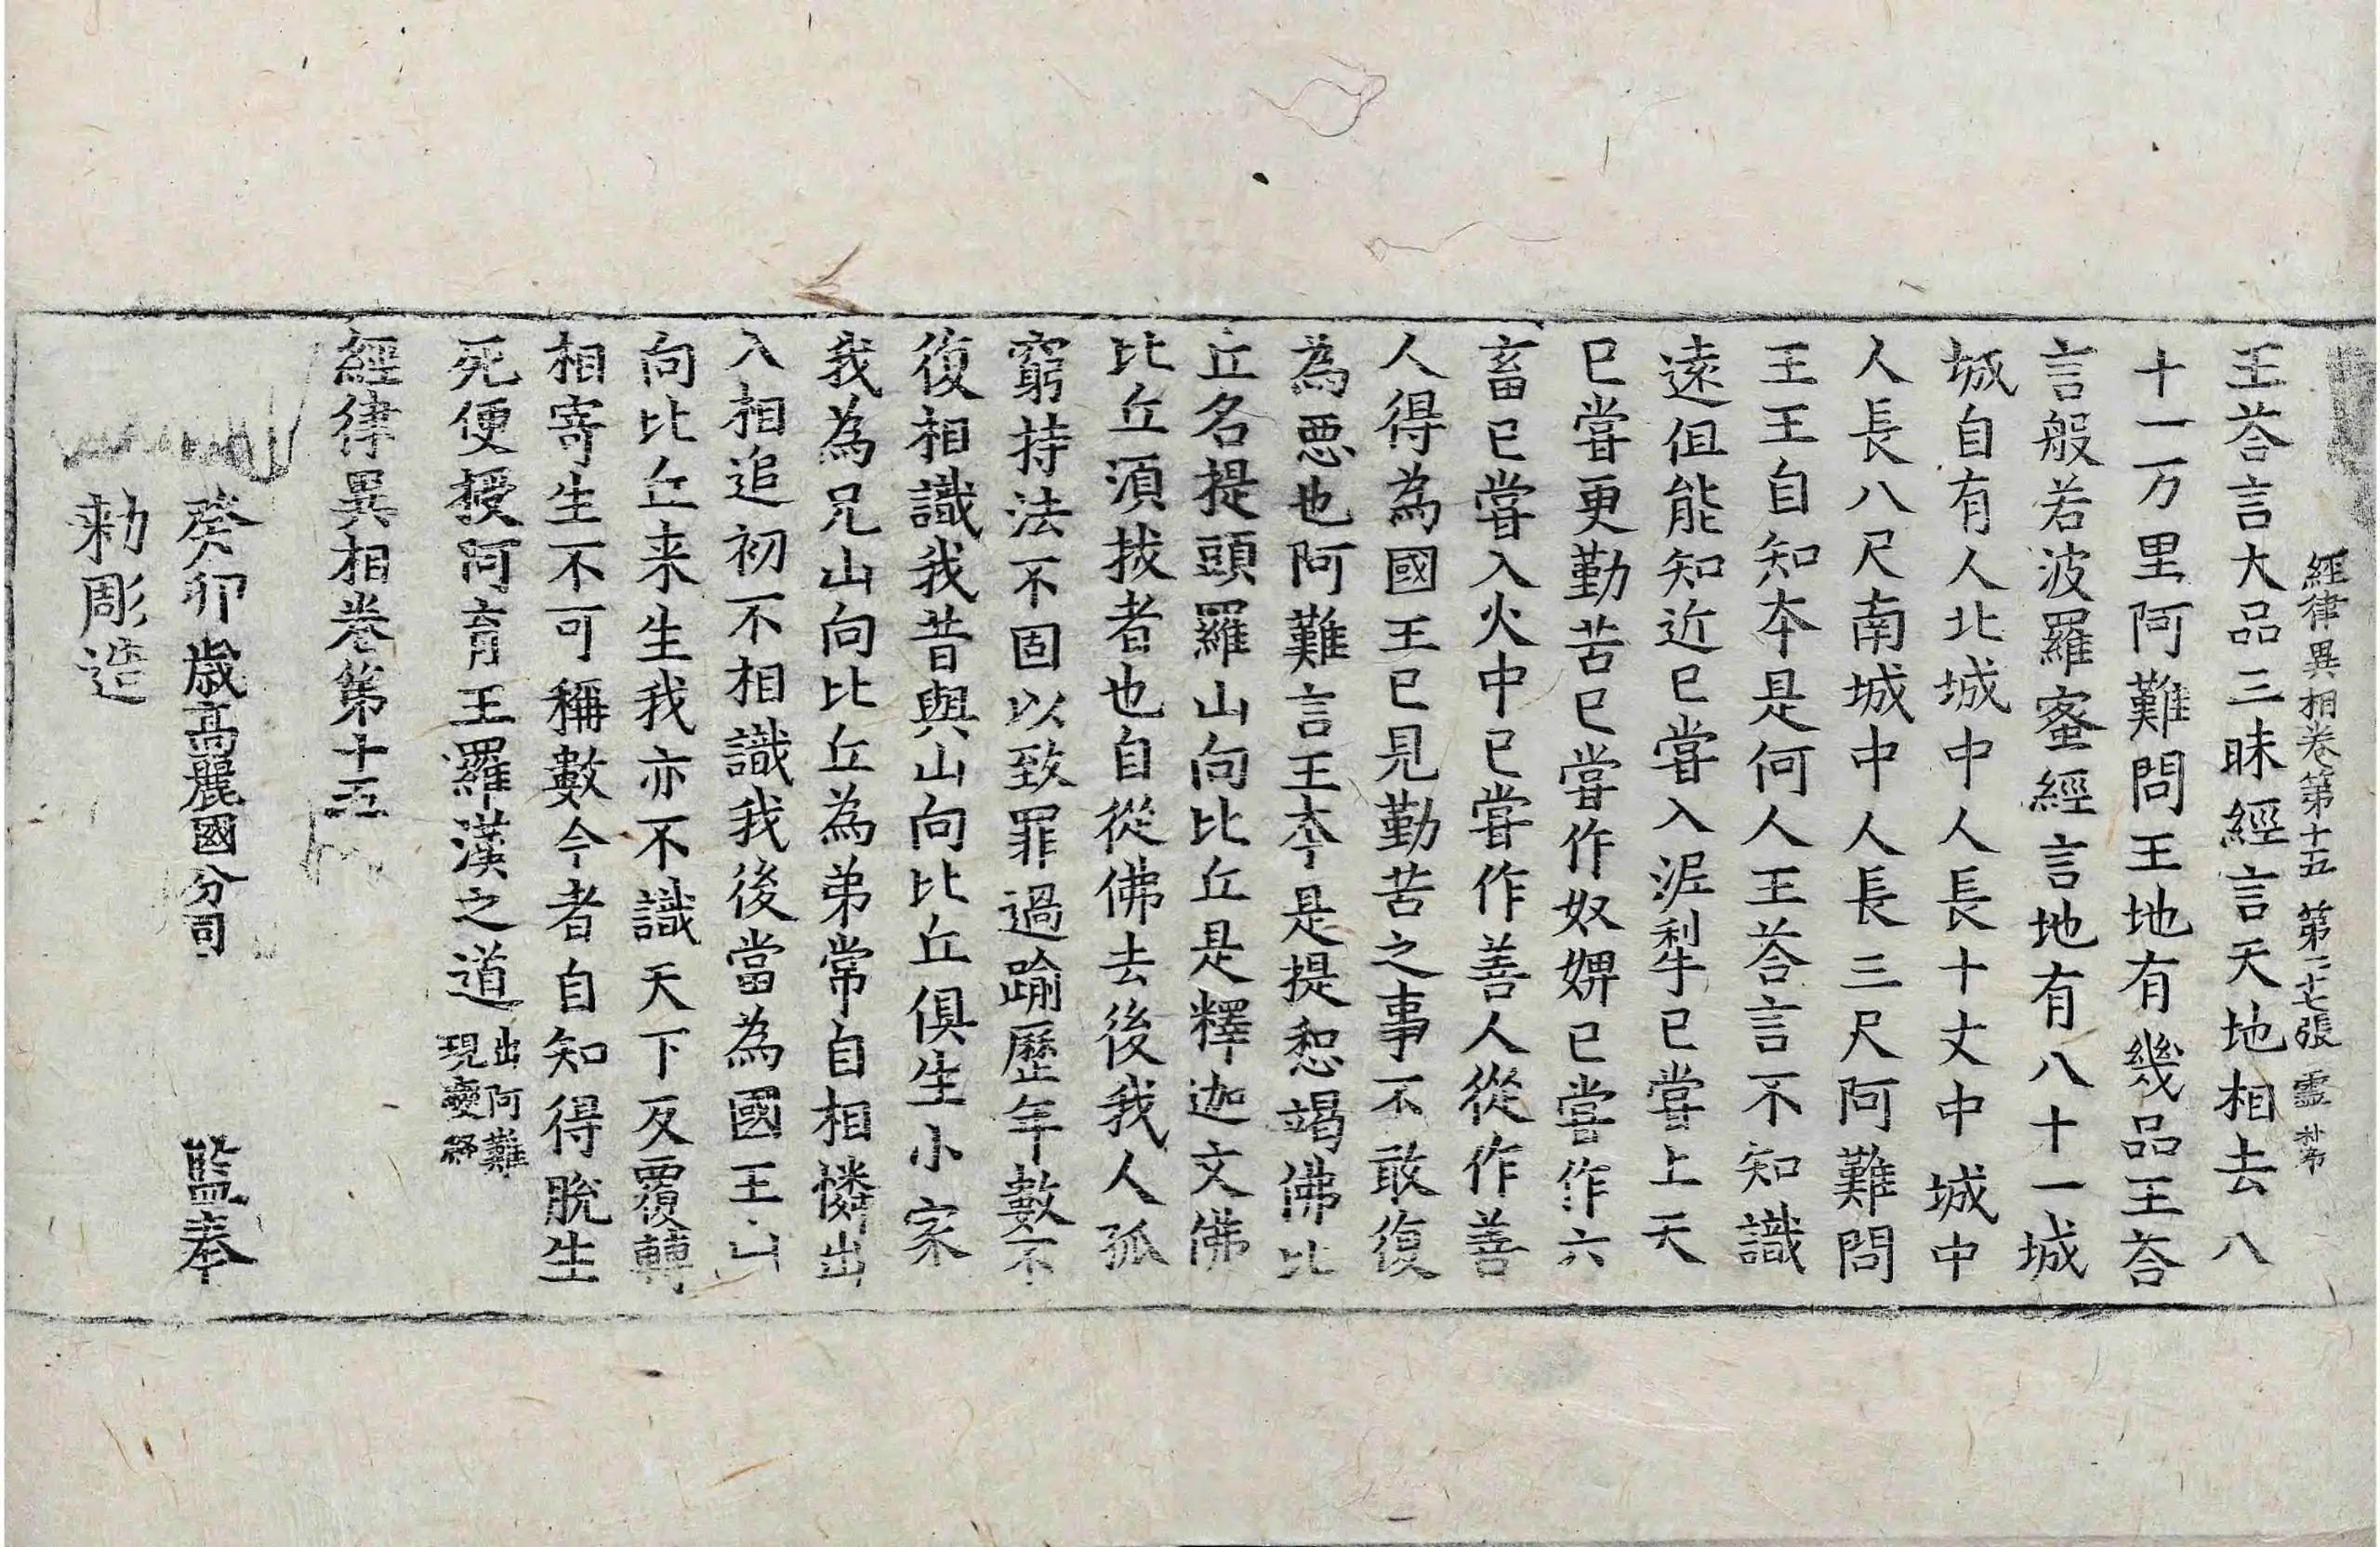 經律異相卷第十五 第二十七張 靈
王荅言大品三昧經言天地相去八
十一万里阿難問王地有幾品王荅
言般若波羅蜜經言地有八十一城
城自有人北城中人長十丈中城中
人長八尺南城中人長三尺阿難問
王王自知本是何人王荅言不知識
遠但能知近已嘗入泥犁已嘗上天
已嘗更勤苦已嘗作奴婢已嘗作六
畜已嘗入火中已嘗作善人從作善
人得為國王已見勤苦之事不敢復
為惡也阿難言王本是提惒竭佛比
丘名提頭羅山向比丘是釋迦文佛
比丘湏拔者也自從佛去後我人孤
窮持法不固以致罪過踰歷年數不
復相識我昔與山向比丘俱生小家
我為兄山向比丘為弟常自相憐出
入相追初不相識我後當為國王山
向比丘来生我亦不識天下反覆轉
相寄生不可稱數今者自知得脫生
死便授阿育王羅漢之道出阿難
現變經
經律異相卷第十五
癸卯歲高麗國分司 監奉
勑彫造